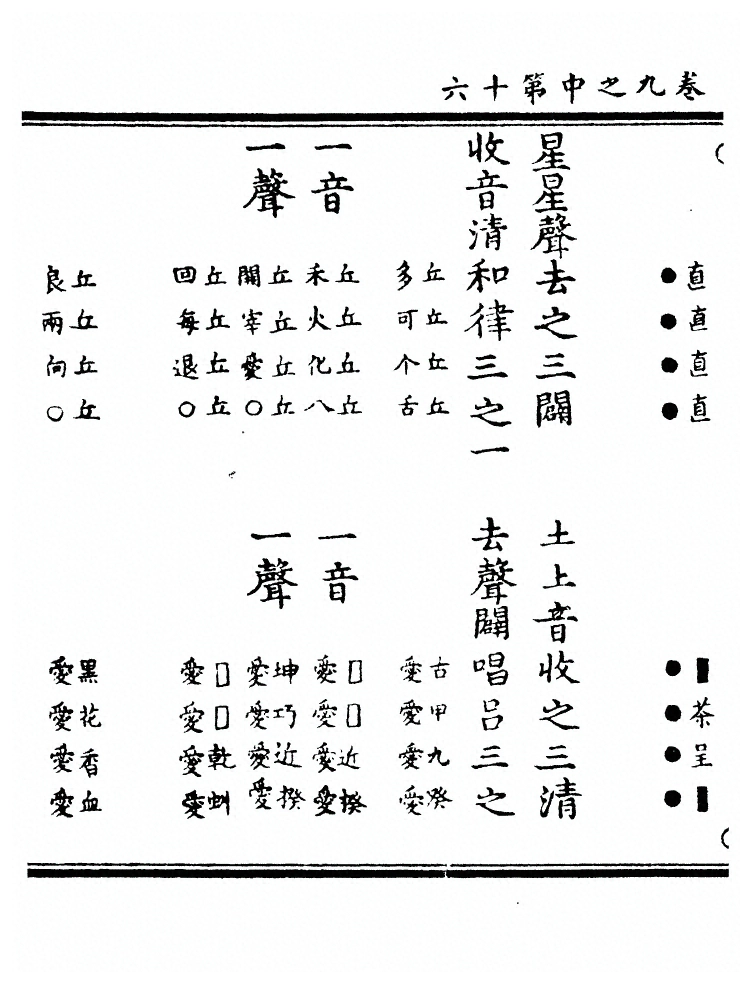 卷九之中第十六
直直直直
●●●●
星星聲去之三闢
收音清和律三之一
丘丘丘丘
多可个舌
一音
丘丘丘丘
禾火化八
一聲
丘丘丘丘
開宰愛○
丘丘丘丘
回每退○
丘丘丘丘
良兩向○
▮茶呈▮
●●●●
土上音收之三清
去聲闢唱呂三之
古甲九癸
愛愛愛愛
一音
□□近揆
愛愛愛愛
一聲
坤巧近揆
愛愛愛愛
□□乾虯
愛愛愛愛
黑花香血
愛愛愛愛